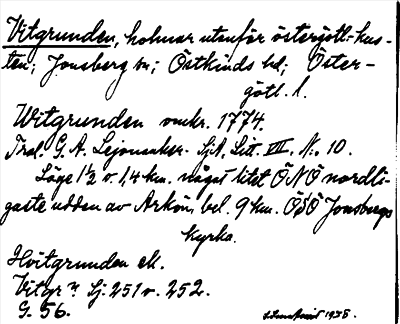 Vitgrunden, holmar utanför östergötl.-kus-
ten; Jonsberg sn; Östkinds hd; Öster-
götl. l.
Witgrunden omkr. 1774.
Tral. G. A. Lejonancker. SjA, Litt. VII, N:o 10.
Läge 1½ v. 1,4 km. något litet ÖNÖ nordli-
gaste udden av Arkön, bel. 9 km. ÖSÖ Jonsbergs
kyrka.
Hvitgrunden ek.
Vitgr:n Sj. 251 v. 252.
G. 56.
1938.